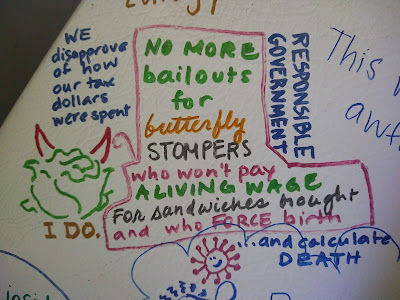 WE
disapprove
of how
our tax
dollars
were spent
NO MORE
bailouts
for
butterfly
STOMPERS
who won't pay
A LIVING WAGE
For sandwiches bought
and who FORCE birth
RESPONSIBLE
GOVERNMENT
I DO.
This
...and calculate
DEATH